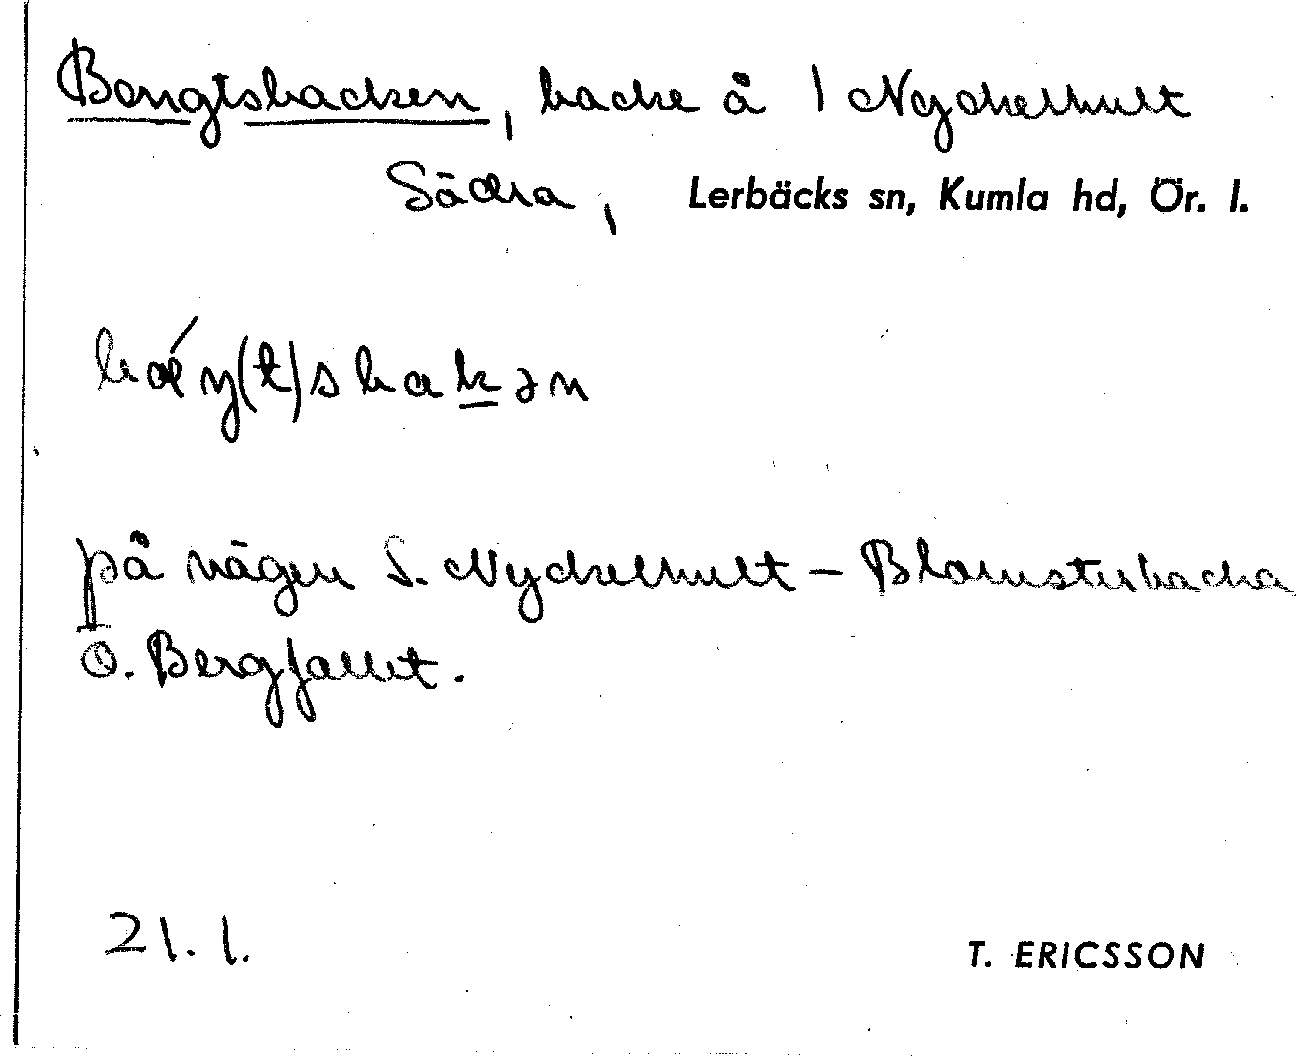 Bengtsbacken, backe å 1 Nyckelhult
Södra, Lerbäcks sn, Kumla hd, Ör. l.
bǽŋ(t)sbakən
på vägen S. Nyckelhult – Blomsterbacka
Ö. Bergfallet.
21.1. T. ERICSSON